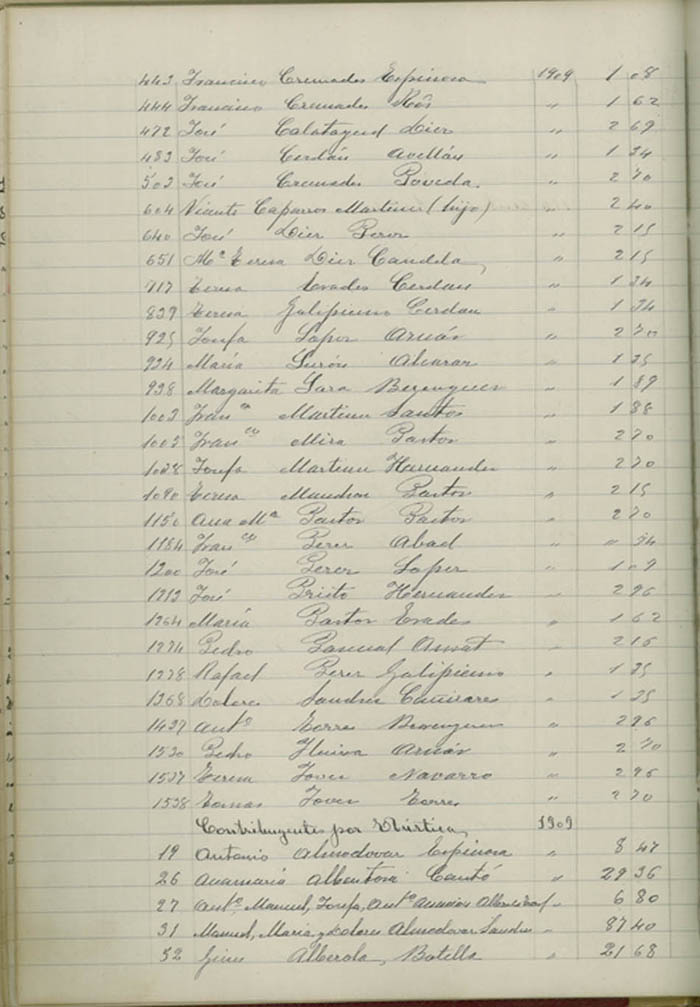 443 Francisco Cremades Espinosa 1909 1 08
444 Francisco Cremades Ros " 1 62
472 José Calatayud Dier " 2 69
483 José Cerdán Avellán " 1 34
503 José Cremades Poveda " 2 70
604 Vicente Caparros Martinez (hijo) " 2 40
640 José Dier Perez " 2 15
651 Mª Teresa Dier Candela " 2 15
717 Teresa Erades Cerdan " 1 34
829 Teresa Galipienso Cerdan " 1 34
925 Josefa Lopez " 2 70
934 María Alcaraz " 1 35
938 Margarita Lara Berenguer " 1 89
1002 Franca Martinez Santos " 1 88
1003 Franco Mira Pastor " 2 70
1028 Josefa Martinez Hernandez " 2 70
1090 Teresa Pastor " 2 15
1150 Ana Mª Pastor Pastor " 2 70
1184 Franco Perez Abad " " 94
1200 José Perez Lopez " 1 09
1212 José Prieto Hernandez " 2 96
1264 María Pastor Erades " 1 62
1274 Pedro Pascual Amat " 2 16
1278 Rafael Perez Galipienso " 1 35
1368 Dolores Sanchez Cañizares " 1 35
1437 Antº Torres Berenguer " 2 96
1530 Pedro " 2 70
1537 Teresa Jover Navarro " 2 96
1538 Tomas Jover Torres " 2 70
Contribuyentes por Rústica 1909
19 Antonio Almodovar Espinosa " 8 47
26 Anamaria Albentosa Cantó " 29 36
27 Antº, Manuel, Josefa, Antª " 6 80
31 Manuel, Maria y Dolores Almodovar Sanchez " 87 40
32 Gines Alberola Botella " 21 68